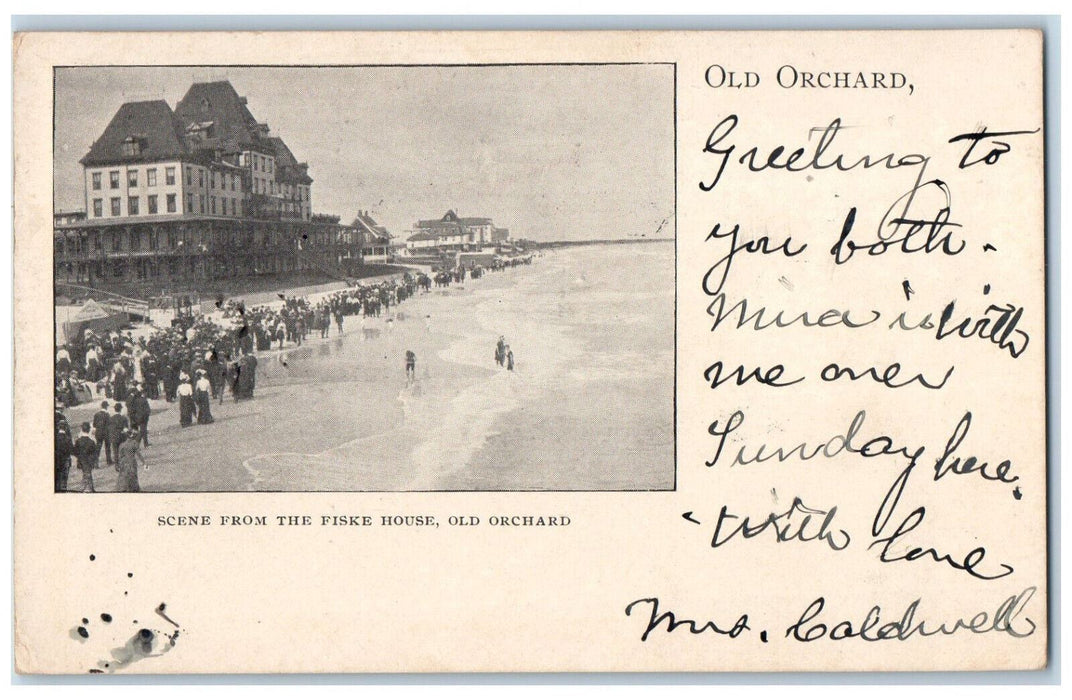 OLD ORCHARD,
Greeting to
you both.
Mina is with
me over
Sunday here.
With love
Mrs. Caldwell
SCENE FROM THE FISKE HOUSE, OLD ORCHARD